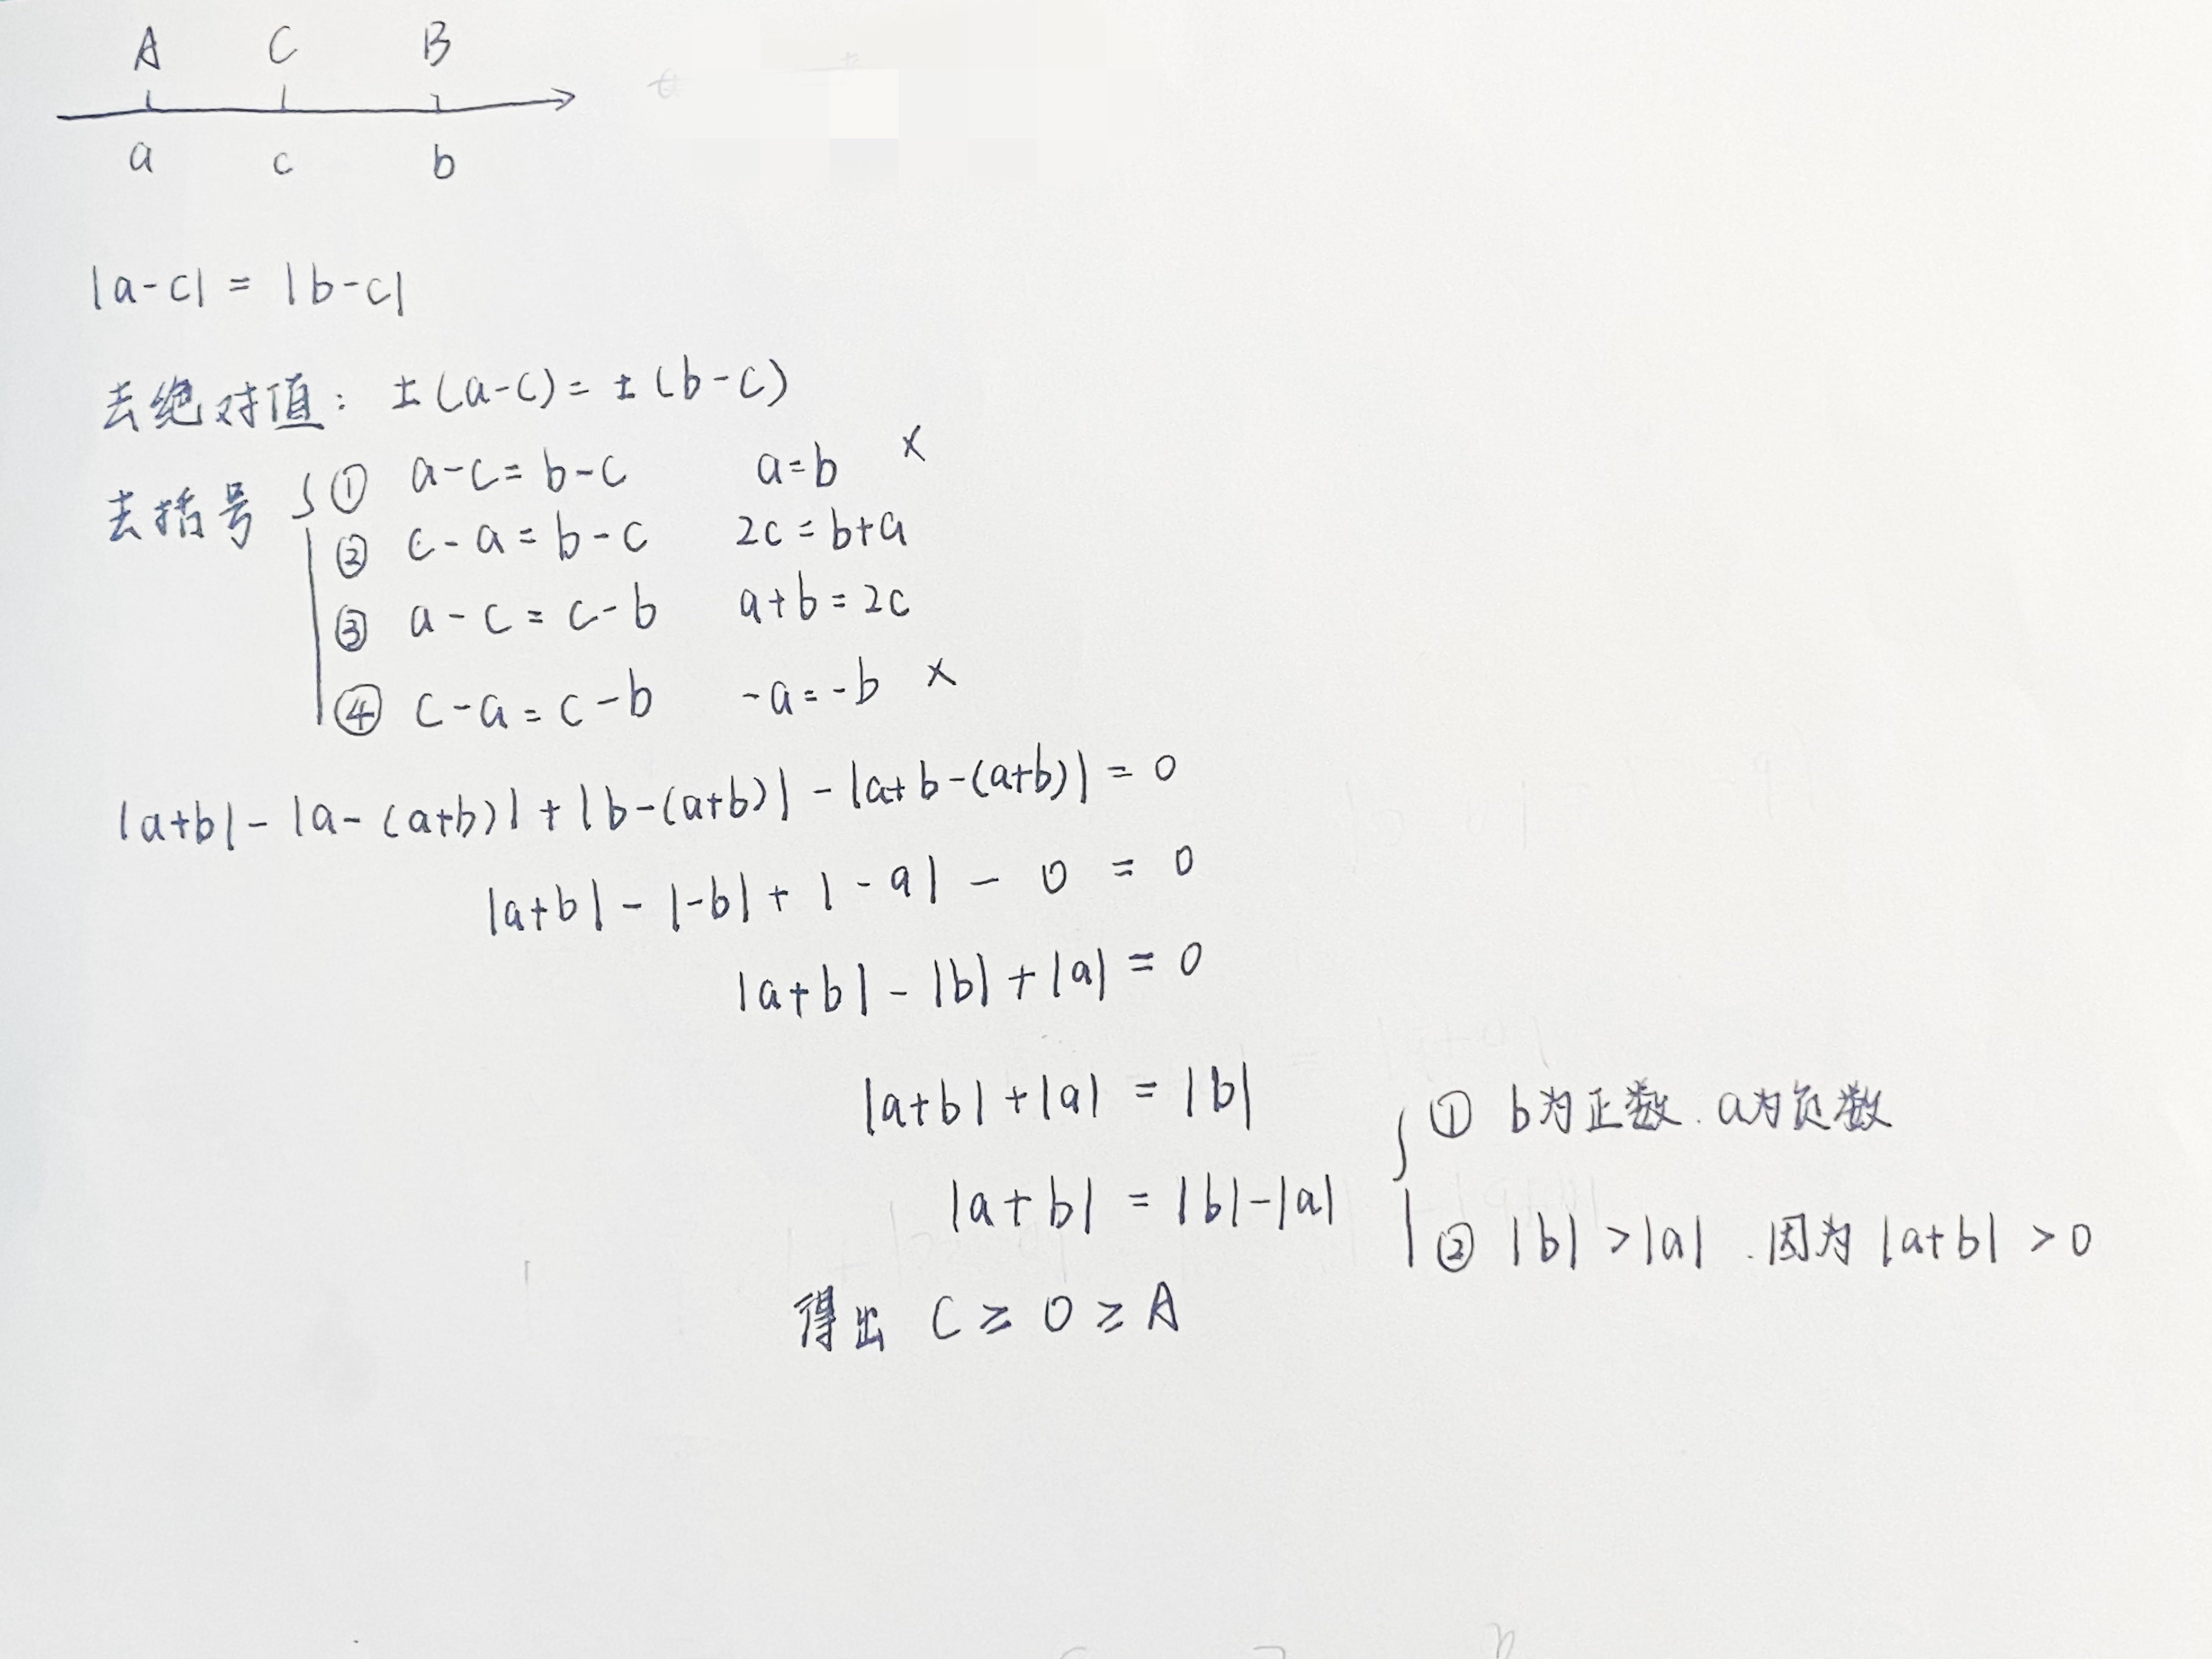 A C B
a c b
|a-c| = |b-c|
去绝对值: ±(a-c)=±(b-c)
去括号 { ① a-c=b-c a=b ×
② c-a=b-c 2c=b+a
③ a-c=c-b a+b=2c
④ c-a=c-b -a=-b ×
|a+b|-|a-(a+b)|+|b-(a+b)|-|a+b-(a+b)|=0
|a+b|-|-b|+|-a|-0=0
|a+b|-|b|+|a|=0
|a+b|+|a|=|b|
{ ① b为正数.a为负数
|a+b|=|b|-|a|
② |b|>|a|.因为|a+b|>0
得出 C≥0≥A